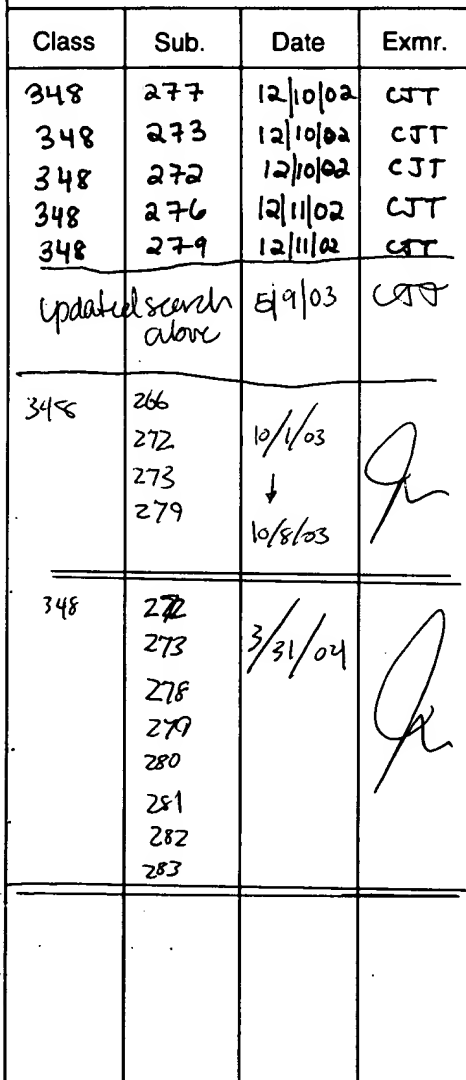 Class Sub. Date Exmr.
348 277 12/10/02 CJT
348 273 12/10/02 CJT
348 272 12/10/02 CJT
348 276 12/11/02 CJT
348 279 12/11/02 CJT
updated search 5/9/03 CJT
above
348 266
272 10/1/03
273 ↓
279 10/8/03
348 272
273 3/31/04
278
279
280
281
282
283